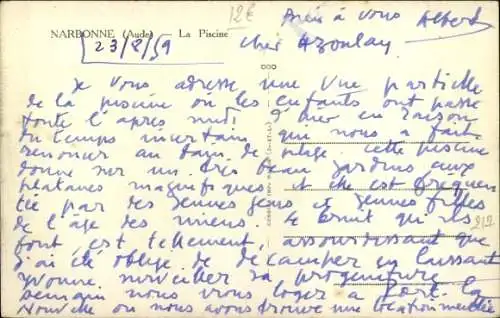 NARBONNE (Aude) — La Piscine
12€
Bien à vous Albert
23/8/59
cher Azoulay
Je vous adresse une vue partielle
de la piscine où les enfants ont passé
toute l'après midi d'hier en raison
du temps incertain qui nous a fait
renoncer au bain de plage. cette piscine
donne sur un très beau jardins aux
platanes magnifiques et elle est fréquen
tée par des jeunes gens et jeunes filles
de l'âge des miens. Le bruit qu'ils
font est tellement assourdissant que
j'ai été obligé de décamper en laissant
Yvonne surveiller sa progéniture
semaine nous vous loger à Port La
Nouvelle où nous avons trouvé une location meublée